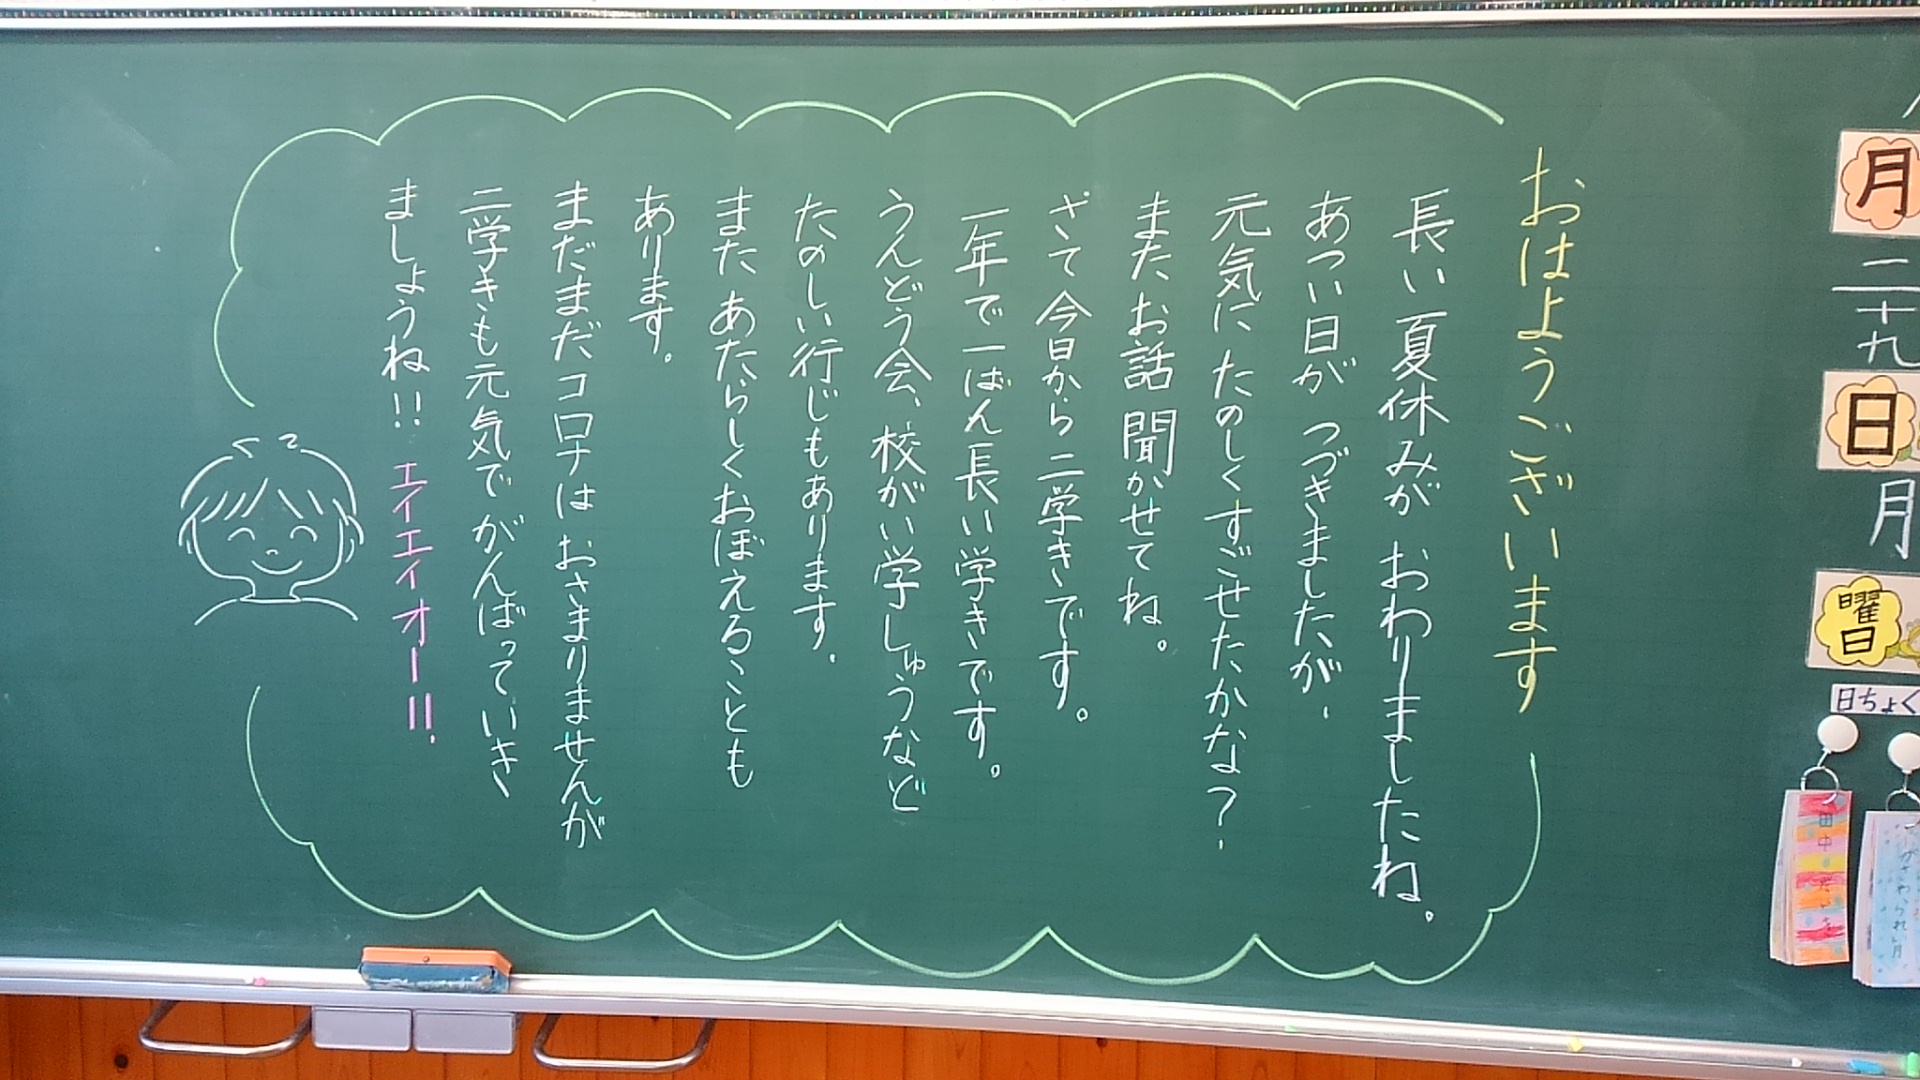 月
二十九
日
月
曜日
日ちょく
おはようございます
長い夏休みが おわりましたね。
あつい日が つづきましたが、
元気に たのしくすごせたかな？
またお話 聞かせてね。
さて 今日から二学きです。
一年で一ばん長い学きです。
うんどう会、校がい学しゅうなど
たのしい行じもあります。
また あたらしくおぼえることも
あります。
まだまだコロナは おさまりませんが
二学きも元気で がんばっていき
ましょうね!! エイエイオー!!